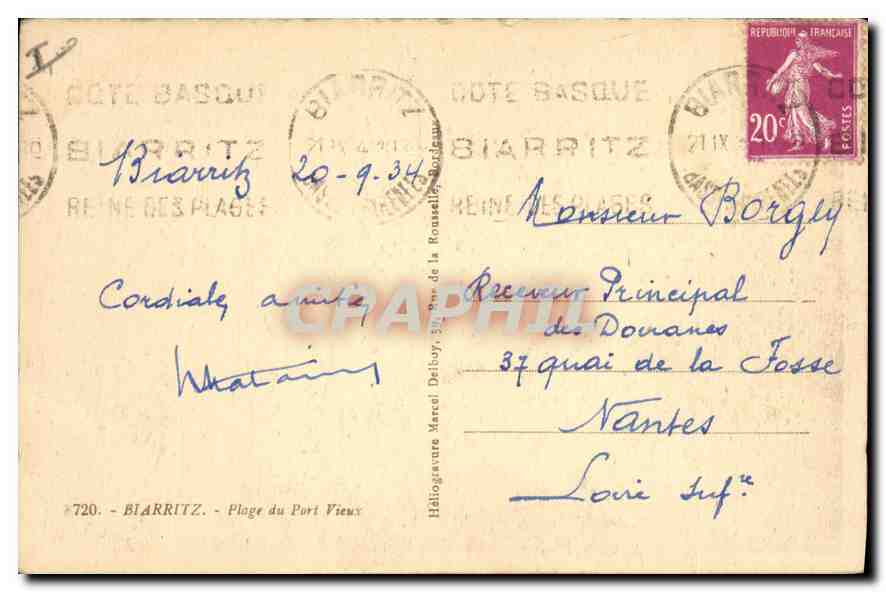 I
COTE BASQUE
BIARRITZ
REINE DES PLAGES
BIARRITZ
COTE BASQUE
BIARRITZ
REINE DES PLAGES
BIARRITZ
21 IX
REPUBLIQUE FRANÇAISE
20c
POSTES
Biarritz 20-9-34
Cordiales amitiés
720. - BIARRITZ. - Plage du Port Vieux
Héliogravure Marcel Delboy, 39, Rue de la Rousselle, Bordeaux
Monsieur Borgey
Receveur Principal
des Douanes
37 quai de la Fosse
Nantes
Loire Infre
CPAPHIL